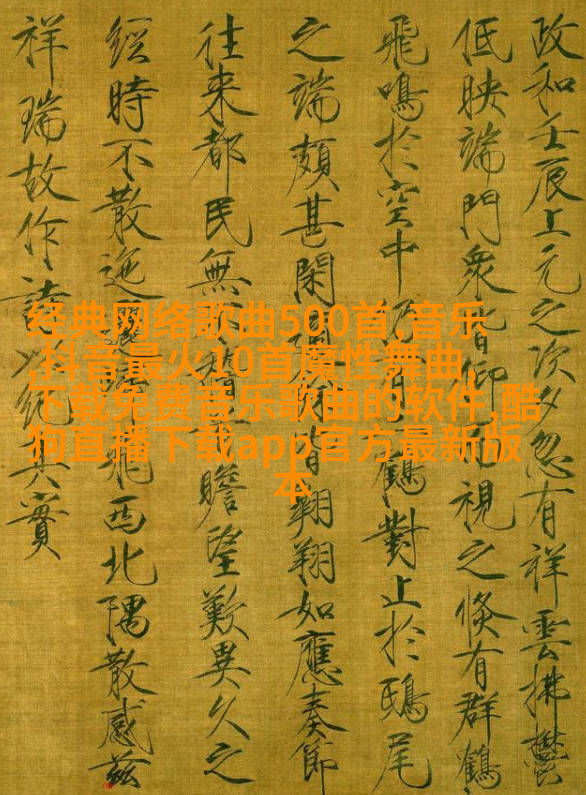 政和壬辰上元之次夕忽有祥雲拂鬱
低映端門衆皆仰視之倐有群鶴
飛鳴於空中鶴對止於鴟尾
之端頗甚閑皆翱翔如應奏節
往来都民無瞻望歎異久之
經時不散迤飛西北隅散感兹
祥瑞故作詩以紀其實
经典网络歌曲500首,音乐
,抖音最火10首魔性舞曲,
下载免费音乐歌曲的软件,酷
狗直播下载app官方最新版
本